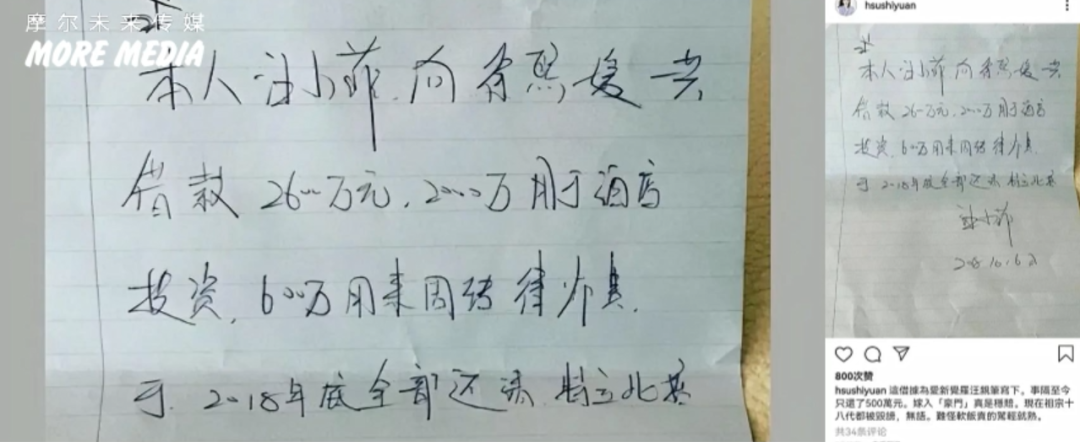 摩尔未来传媒
MORE MEDIA
本人汪小菲向徐熙媛共
借款2600万元,2000万用于酒店
投资,600万用来周转律师费.
于2018年底全部还清 特立此
hsushiyuan
本人汪小菲向徐熙媛共
借款2600万元,2000万用于酒店
投资,600万用来周转律师费.
于2018年底全部还清 特立此
汪小菲
800次赞
hsushiyuan 這借據為愛新覺羅汪親筆寫下。事隔至今
只還了500萬元。嫁入「豪門」真是穩賠。現在祖宗十
八代都被毀謗,無語。難怪軟飯賣的駕輕就熟。
共34条评论